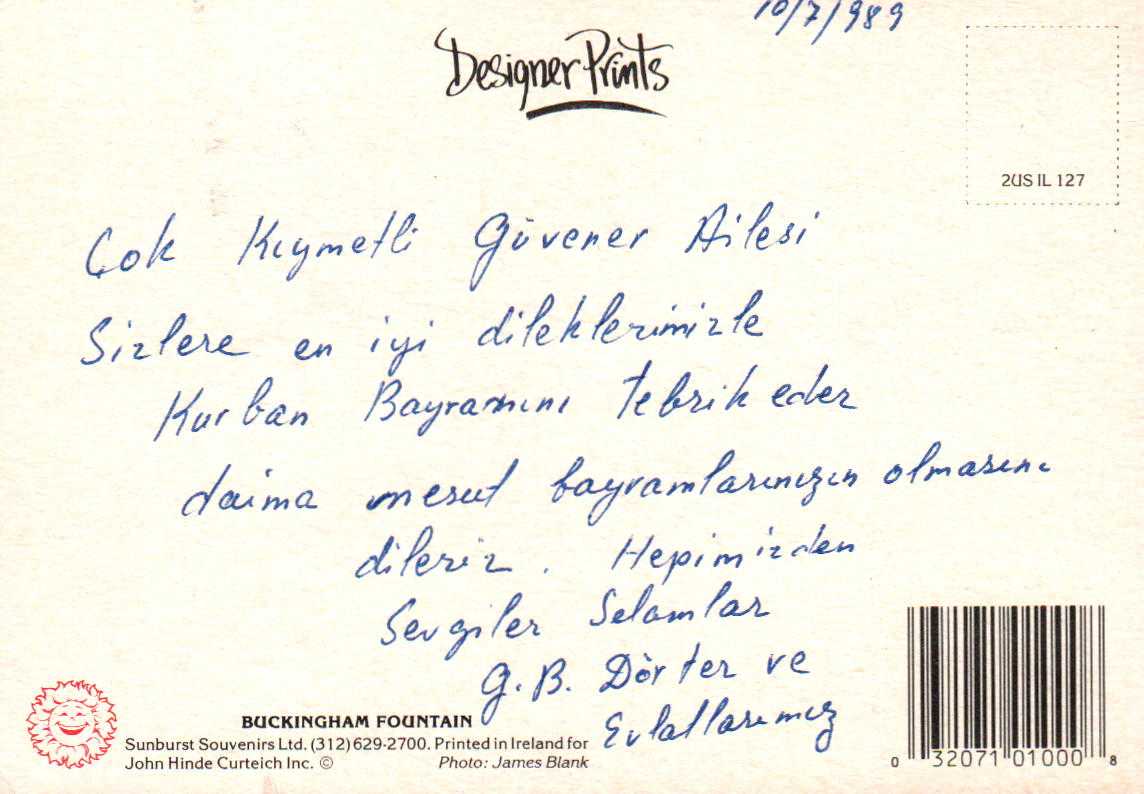 10/7/989
Designer Prints
2US IL 127
Çok Kıymetli Güvener Ailesi
Sizlere en iyi dileklerimizle
Kurban Bayramını tebrik eder
daima mesut bayramlarınızın olmasını
dileriz. Hepimizden
Sevgiler Selamlar
G.B. Dörter ve
Evlatlarımız
BUCKINGHAM FOUNTAIN
Sunburst Souvenirs Ltd. (312) 629-2700. Printed in Ireland for
John Hinde Curteich Inc. © Photo: James Blank
0 32071 01000 8